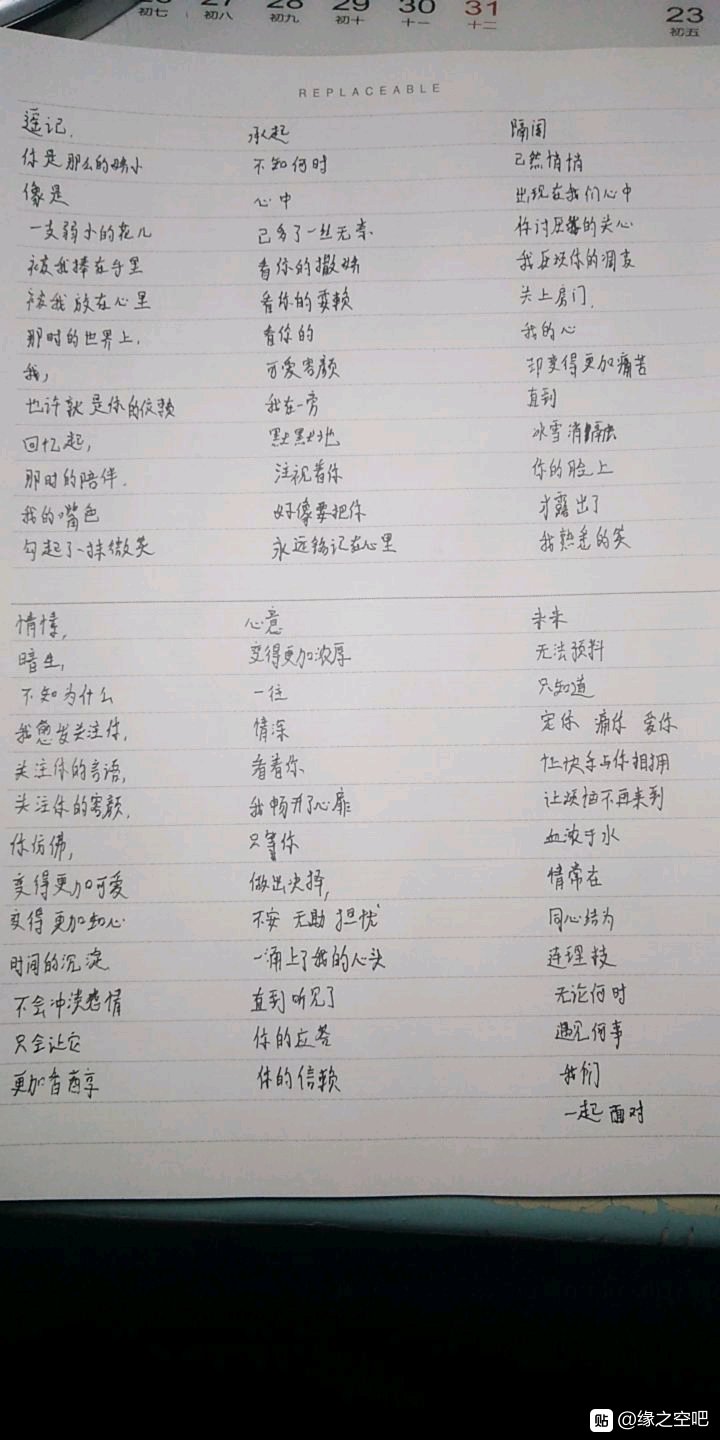 27 28 29 30 31 23
初七 初八 初九 初十 十一 十二 初五
REPLACEABLE
遥记.
你是那么的娇小
像是
一支弱小的花儿
被我捧在手里
被我放在心里
那时的世界上.
我,
也许就是你的依赖
回忆起,
那时的陪伴.
我的嘴色
勾起了一抹微笑
承起
不知何时
心中
已多了一丝无奈.
看你的撒娇
看你的耍赖
看你的
可爱容颜
我在一旁
默默地
注视着你
好像要把你
永远铭记在心里
隔阂
已然悄悄
出现在我们心中
你讨厌我的关心
我厌烦你的调皮
关上房门.
我的心
却变得更加痛苦
直到
冰雪消融
你的脸上
才露出了
我熟悉的笑
情愫,
暗生,
不知为什么
我愈发关注你,
关注你的言语,
关注你的容颜,
你仿佛,
变得更加可爱
变得更加知心
时间的沉淀
不会冲淡感情
只会让它
更加香醇
心意
变得更加浓厚
一往
情深
看着你
我畅开了心扉
只等你
做出决择,
不安 无助 担忧
一涌上了我的心头
直到听见了
你的应答
你的信赖
未来
无法预料
只知道
宠你 痛你 爱你
让快乐与你相拥
让烦恼不再来到
血浓于水
情常在
同心结为
连理枝
无论何时
遇见何事
我们
一起面对
贴 @缘之空吧